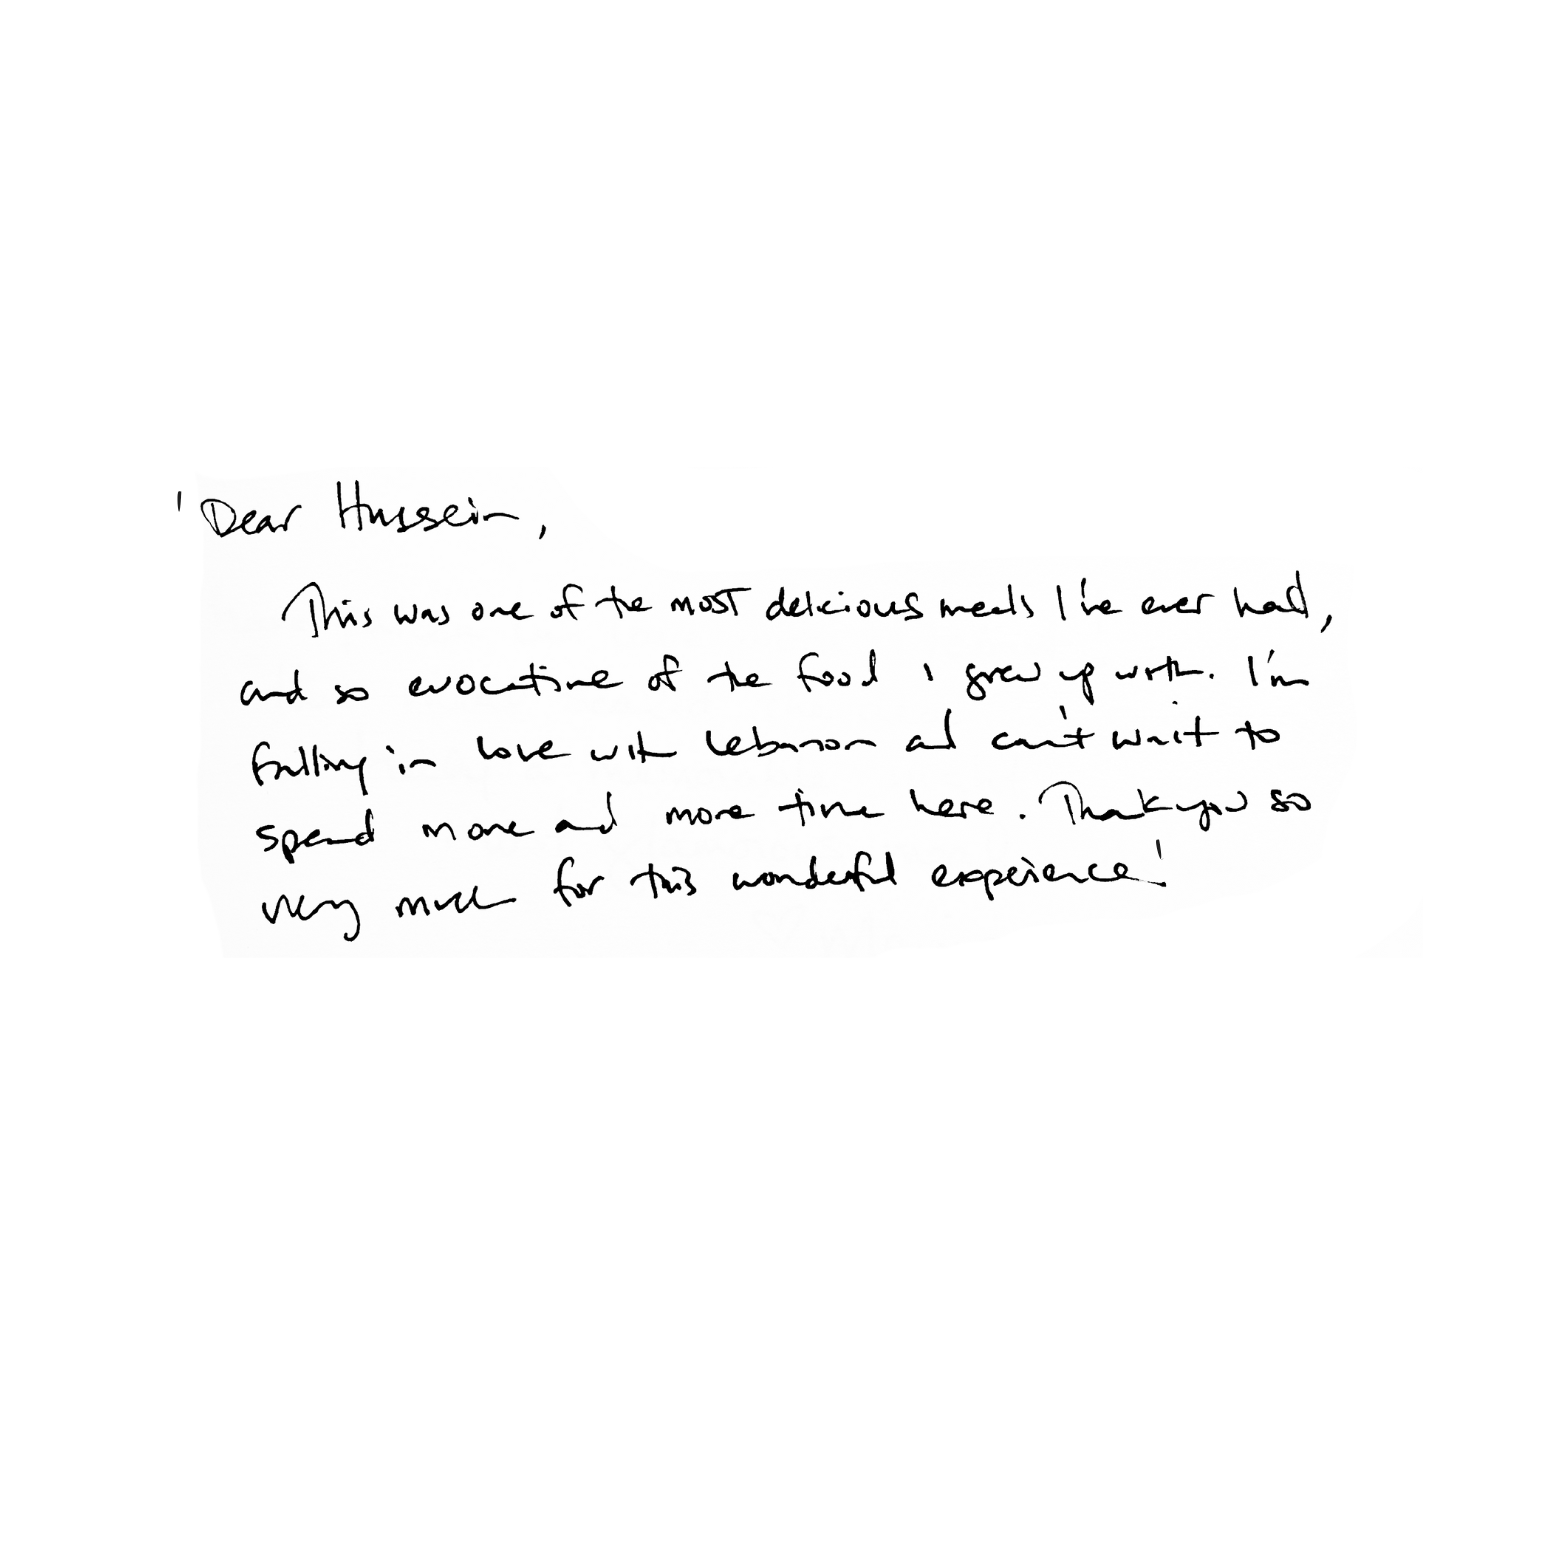 Dear Hussein,
This was one of the most delicious meals I've ever had,
and so evocative of the food I grew up with. I'm
falling in love with Lebanon and can't wait to
spend more and more time here. Thank you so
very much for this wonderful experience!